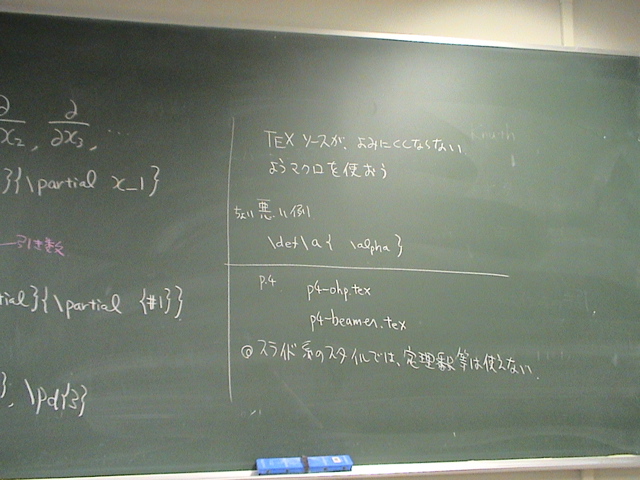 ∂/∂x_2, ∂/∂x_3, …
}{\partial x_1}
引き数
tial}{\partial {#1}}
}, \pd{3}
TEX ソースが、よみにくくならない
ようマクロを使おう
悪い例
\def\a{ \alpha }
p.4
p4-ohp.tex
p4-beamer.tex
◎スライド系のスタイルでは、定理環境等は使えない.